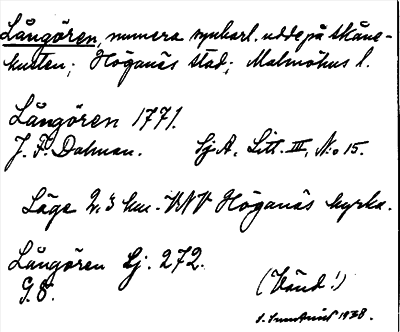 Långören, numera synbarl. udde på skåne-
kusten; Höganäs stad; Malmöhus l.
Långören 1771.
J. F. Dalman. Sj A. Litt. III, No 15.
Läge 2.3 km. VNV Höganäs kyrka.
Långören Lj. 272.
G. S. (Vänd!)
1938.